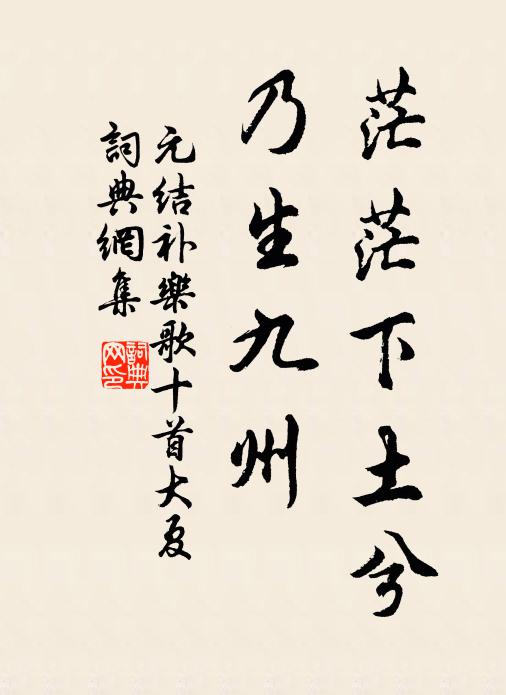 茫茫下土兮
乃生九州
元结补樂歌十首大夏
詞典網集
詞典
网印